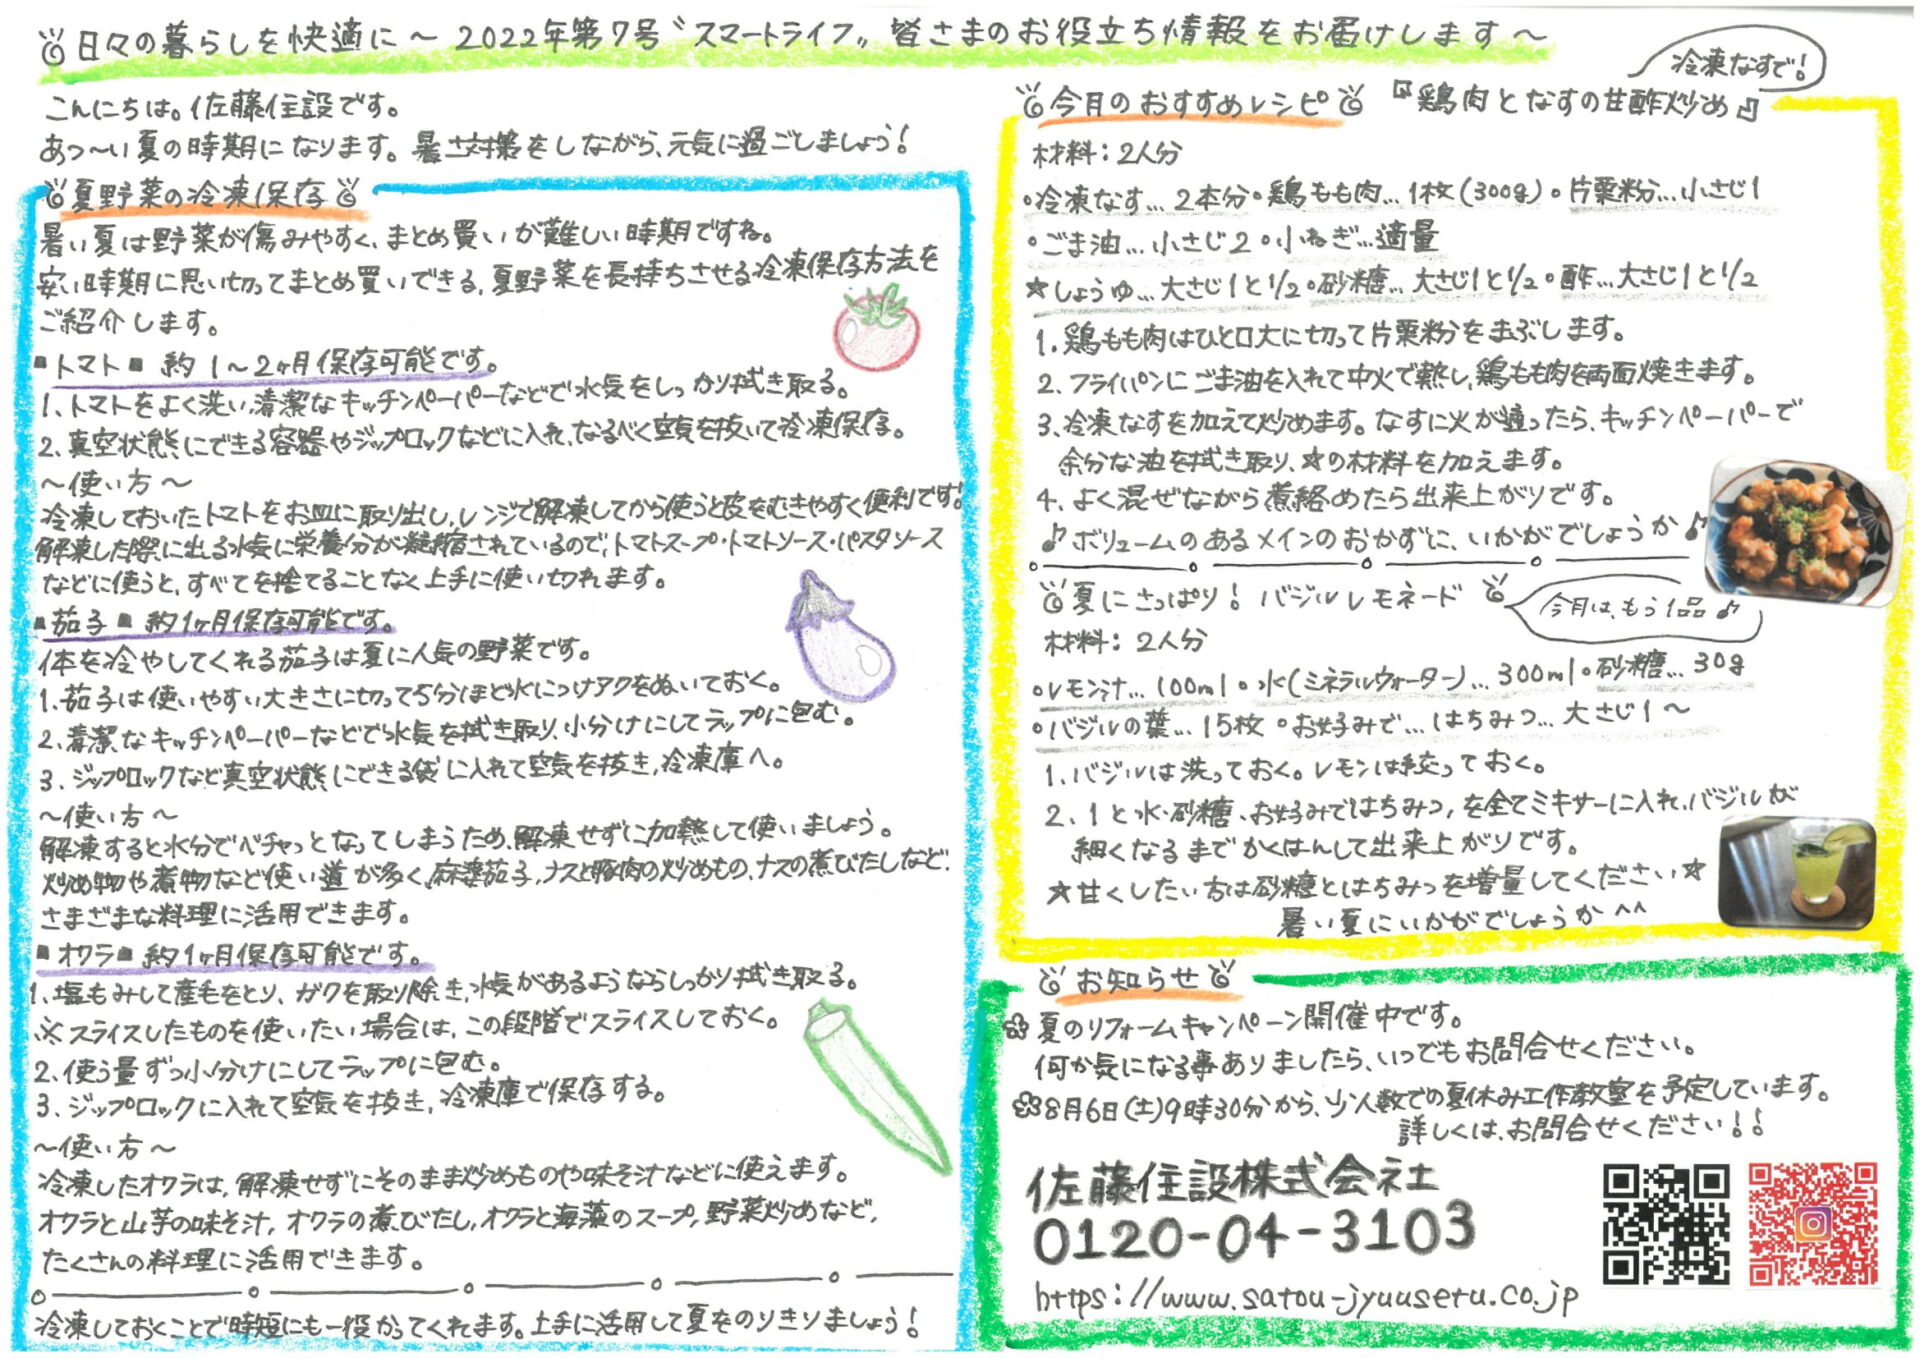 日々の暮らしを快適に～2022年第7号〝スマートライフ〟皆さまのお役立ち情報をお届けします～
こんにちは。佐藤住設です。
あつ～い夏の時期になります。暑さ対策をしながら、元気に過ごしましょう!
夏野菜の冷凍保存
暑い夏は野菜が傷みやすく、まとめ買いが難しい時期ですね。
安い時期に思い切ってまとめ買いできる、夏野菜を長持ちさせる冷凍保存方法を
ご紹介します。
▪トマト▪ 約1～2ヶ月保存可能です。
1、トマトをよく洗い、清潔なキッチンペーパーなどで水気をしっかり拭き取る。
2、真空状態にできる容器やジップロックなどに入れ、なるべく空気を抜いて冷凍保存。
～使い方～
冷凍しておいたトマトをお皿に取り出し、レンジで解凍してから使うと皮をむきやすく便利です!
解凍した際に出る水気に栄養分が凝縮されているので、トマトスープ・トマトソース・パスタソース
などに使うと、すべてを捨てることなく上手に使い切れます。
▪茄子▪ 約1ヶ月保存可能です。
体を冷やしてくれる茄子は夏に人気の野菜です。
1、茄子は使いやすい大きさに切って5分ほど水につけアクをぬいておく。
2、清潔なキッチンペーパーなどで水気を拭き取り、小分けにしてラップに包む。
3、ジップロックなど真空状態にできる袋に入れて空気を抜き、冷凍庫へ。
～使い方～
解凍すると水分でベチャっとなってしまうため、解凍せずに加熱して使いましょう。
炒め物や煮物など使い道が多く、麻婆茄子、ナスと豚肉の炒めもの、ナスの煮びたしなど、
さまざまな料理に活用できます。
▪オクラ▪ 約1ヶ月保存可能です。
1、塩もみして産毛をとり、ガクを取り除き、水気があるようならしっかり拭き取る。
※スライスしたものを使いたい場合は、この段階でスライスしておく。
2、使う量ずつ小分けにしてラップに包む。
3、ジップロックに入れて空気を抜き、冷凍庫で保存する。
～使い方～
冷凍したオクラは、解凍せずにそのまま炒めものや味そ汁などに使えます。
オクラと山芋の味そ汁、オクラの煮びたし、オクラと海藻のスープ、野菜炒めなど、
たくさんの料理に活用できます。
冷凍しておくことで時短にも一役かってくれます。上手に活用して夏をのりきりましょう!
冷凍なすで!
今月のおすすめレシピ 『鶏肉となすの甘酢炒め』
材料:2人分
・冷凍なす…2本分・鶏もも肉…1枚(300g)・片栗粉…小さじ1
・ごま油…小さじ2・小ねぎ…適量
☆しょうゆ…大さじ1と1/2・砂糖…大さじ1と1/2・酢…大さじ1と1/2
1.鶏もも肉はひと口大に切って片栗粉をまぶします。
2.フライパンにごま油を入れて中火で熱し、鶏もも肉を両面焼きます。
3、冷凍なすを加えて炒めます。なすに火が通ったら、キッチンペーパーで
余分な油を拭き取り、☆の材料を加えます。
4.よく混ぜながら煮絡めたら出来上がりです。
♪ボリュームのあるメインのおかずに、いかがでしょうか♪
夏にさっぱり! バジルレモネード
今月は、もう1品♪
材料:2人分
・レモン汁…100ml・水(ミネラルウォーター)…300ml・砂糖…30g
・バジルの葉…15枚・お好みで…はちみつ…大さじ1～
1、バジルは洗っておく。レモンは絞っておく。
2、1と水・砂糖、お好みではちみつ、を全てミキサーに入れ、バジルが
細くなるまでかくはんして出来上がりです。
★甘くしたい方は砂糖とはちみつを増量してください★
暑い夏にいかがでしょうか^^
お知らせ
夏のリフォームキャンペーン開催中です。
何か気になる事ありましたら、いつでもお問合せください。
8月6日(土)9時30分から、少人数での夏休み工作教室を予定しています。
詳しくは、お問合せください!!
佐藤住設株式会社
0120-04-3103
https://www.satou-jyuusetu.co.jp